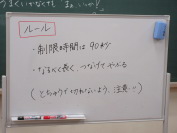 うまくいかなくても まぁ いいか!
ルール
・制限時間は 90秒
・なるべく長く、つなげてやってみる
(とちゅうで切れないよう、注意!!)